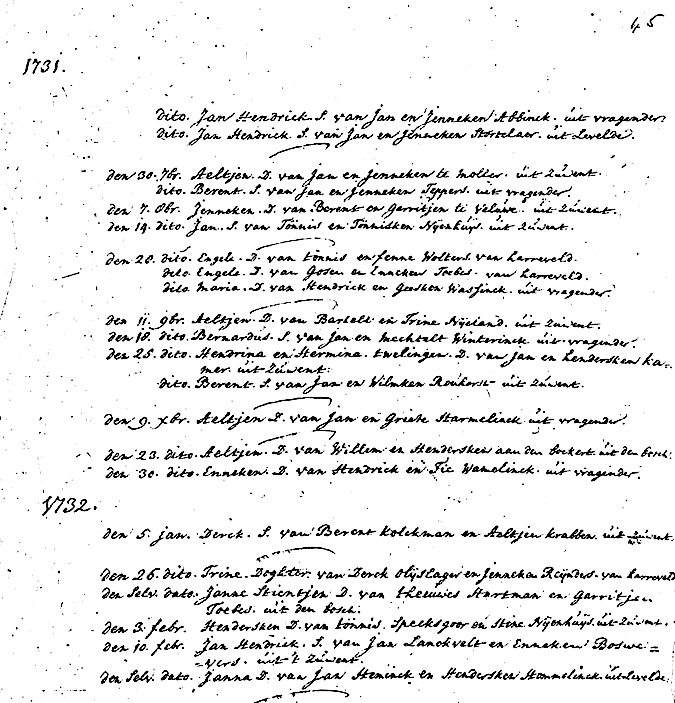 45
1731.
dito. Jan Hendrick. S. van Jan en Jenneken Abbinck. uit vragender.
dito. Jan Hendrick. S. van Jan en Jenneken Stortelaer. uit Levelde.
den 30. 7br. Aeltjen. D. van Jan en Jenneken te Moller. uit Zuwent.
dito. Berent. S. van Jan en Jenneken Teppers. uit vragender.
den 7. 8br. Jenneken. D. van Berent en Garritjen te Veluwe. uit Zuwent.
den 14. dito. Jan. S. van Tönnis en Tönnisken Nijenhuijs. uit Zuwent.
den 20. dito. Engele. D. van tönnis en fenne Wolters. van harreveld.
dito. Engele. D. van Gosen en Enneken Toebes. van harreveld.
dito. Maria. D. van Hendrick en Geesken Wassinck. uit vragender.
den 11. 9br. Aeltjen. D. van Bartelt en Trine Nijeland. uit Zuwent.
den 18. dito. Bernardus. S. van Jan en Mechtelt Winterinck. uit vragender.
den 25. dito. Hendrina en Hermina. twelingen. D. van Jan en hendersken ka=
mer. uit Zuwent.
dito. Berent. S. van Jan en Wilmken Rouhorst. uit Zuwent.
den 9. xbr. Aeltjen D. van Jan en Griete Harmelinck. uit vragender.
den 23. dito. Aeltjen. D. van Willem en Hendersken aan den bockert. uit den bosch.
den 30. dito. Enneken. D. van Hendrick en Fie Wamelinck. uit vragender.
1732.
den 5. jan. Derck. S. van Berent Kolckman en Aeltjen krabben. uit Zuwent.
den 26. dito. Trine. Doghter. van Derck Olijslager en Jenneken Reijnders. van harreveld
den Selv. dato. Janne Stientjen D. van theeuwes Hartman en Garritjen
Toebes. uit den bosch.
den 3. febr. Hendersken D. van tönnis. Specksgoor en Stine Nijenhuijs. uit Zuwent.
den 10. feb. Jan Hendrick. S. van Jan Lanckvelt en Enneken Boswe=
=vers. uit 't Zuwent.
den Selv. dato. Janna D. van Jan Heminck en Hendersken Hommelinck. uit Levelde.